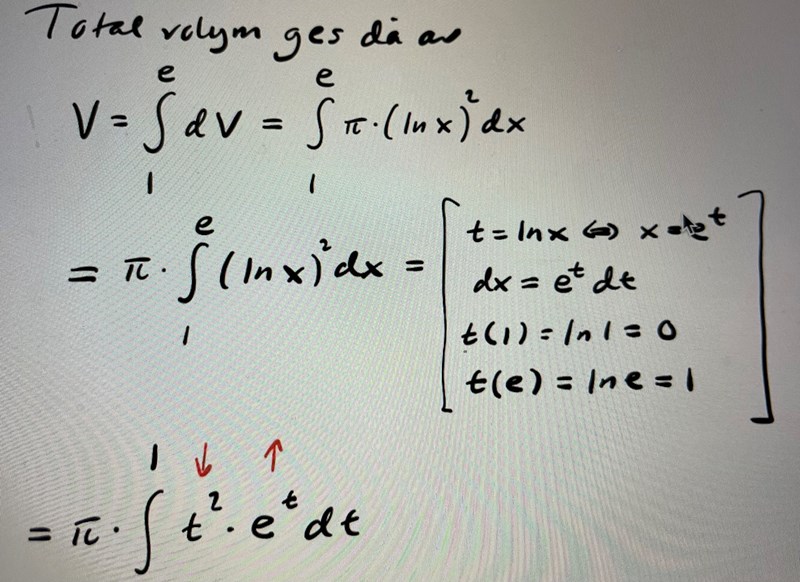 Total volym ges då av
V = ∫₁ᵉ dV = ∫₁ᵉ π·(ln x)² dx
= π·∫₁ᵉ (ln x)² dx = [ t = ln x ⇔ x = eᵗ
dx = eᵗ dt
t(1) = ln 1 = 0
t(e) = ln e = 1 ]
1 ↓ ↑
= π·∫ t²·eᵗ dt